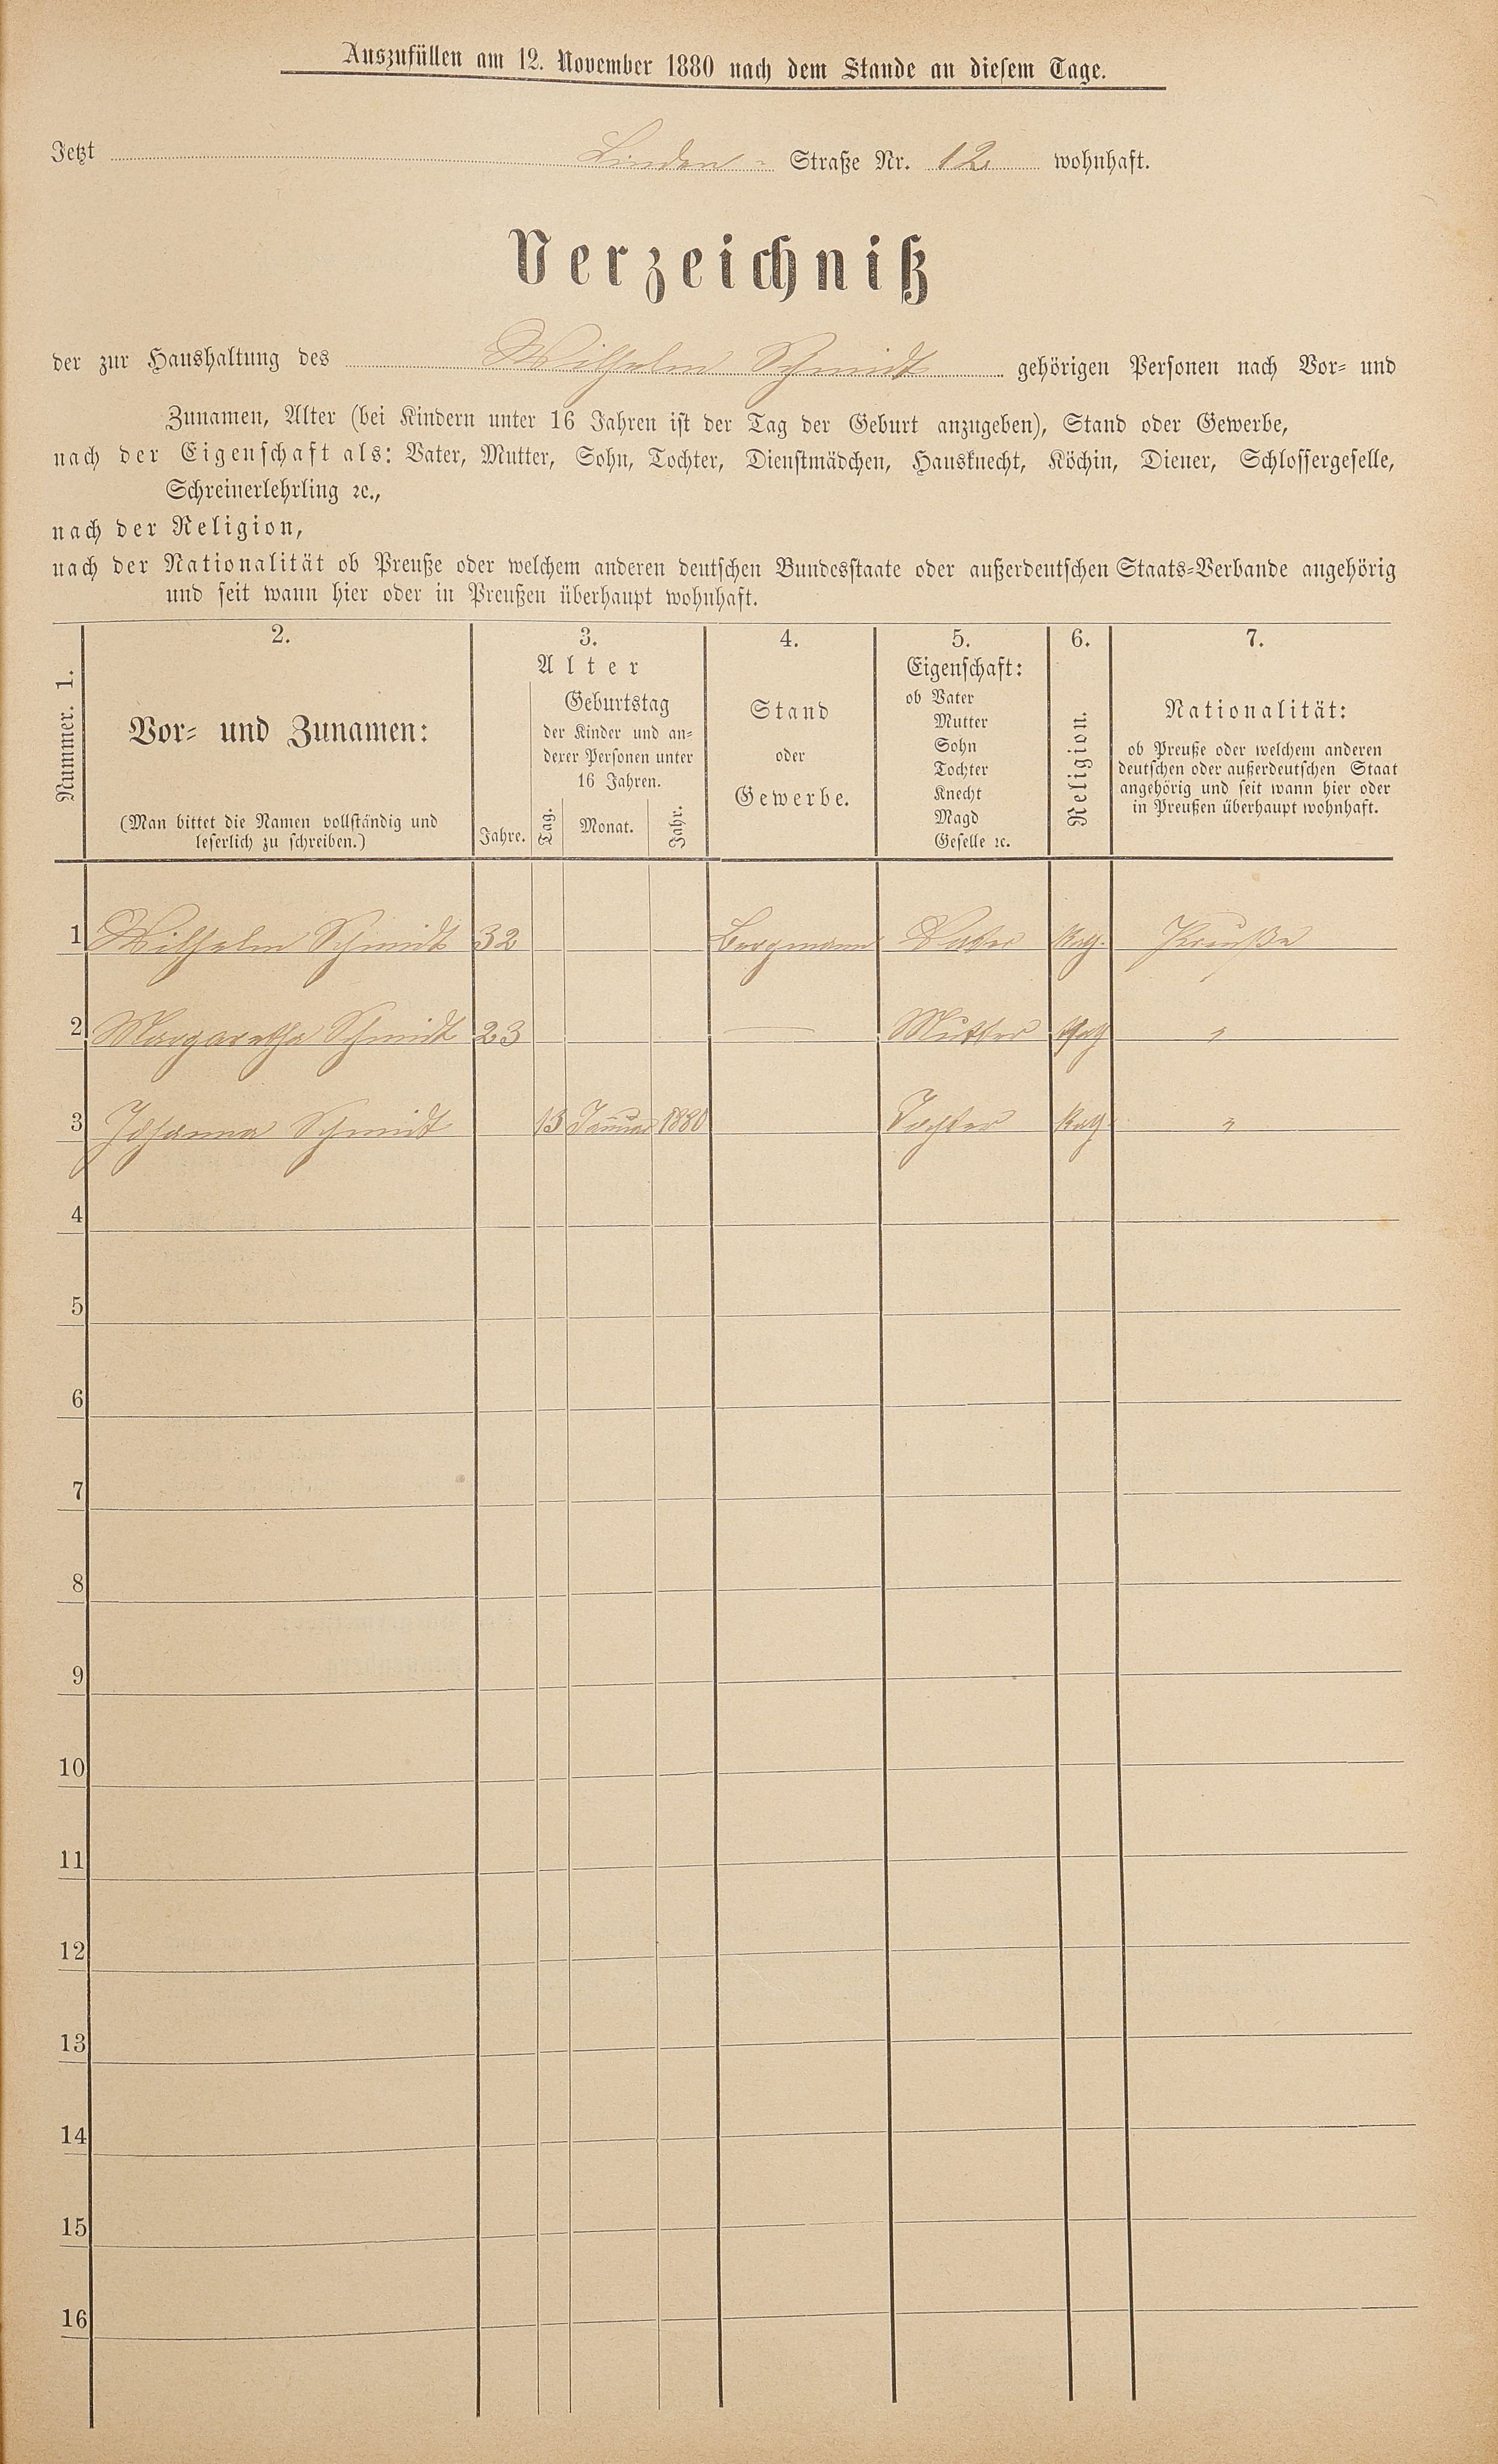 Auszufüllen am 12. November 1880 nach dem Stande an diesem Tage.
Jetzt Linden- Straße Nr. 12. wohnhaft.
Verzeichniß
der zur Haushaltung des Wilhelm Schmidt gehörigen Personen nach Vor- und
Zunamen, Alter (bei Kindern unter 16 Jahren ist der Tag der Geburt anzugeben), Stand oder Gewerbe,
nach der Eigenschaft als: Vater, Mutter, Sohn, Tochter, Dienstmädchen, Hausknecht, Köchin, Diener, Schlossergeselle,
Schreinerlehrling ꝛc.,
nach der Religion,
nach der Nationalität ob Preuße oder welchem anderen deutschen Bundesstaate oder außerdeutschen Staats-Verbande angehörig
und seit wann hier oder in Preußen überhaupt wohnhaft.
Nummer. 1.
2.
Vor- und Zunamen:
(Man bittet die Namen vollständig und
leserlich zu schreiben.)
3.
Alter
Jahre.
Geburtstag
der Kinder und an-
derer Personen unter
16 Jahren.
Tag.
Monat.
Jahr.
4.
Stand
oder
Gewerbe.
5.
Eigenschaft:
ob Vater
Mutter
Sohn
Tochter
Knecht
Magd
Geselle ꝛc.
6.
Religion.
7.
Nationalität:
ob Preuße oder welchem anderen
deutschen oder außerdeutschen Staat
angehörig und seit wann hier oder
in Preußen überhaupt wohnhaft.
1 Wilhelm Schmidt 32 Bergmann Vater Kath. Preuße
2 Margaretha Schmidt 23 — Mutter Kath "
3 Johanna Schmidt 13 Januar 1880 Tochter Kath "
4
5
6
7
8
9
10
11
12
13
14
15
16